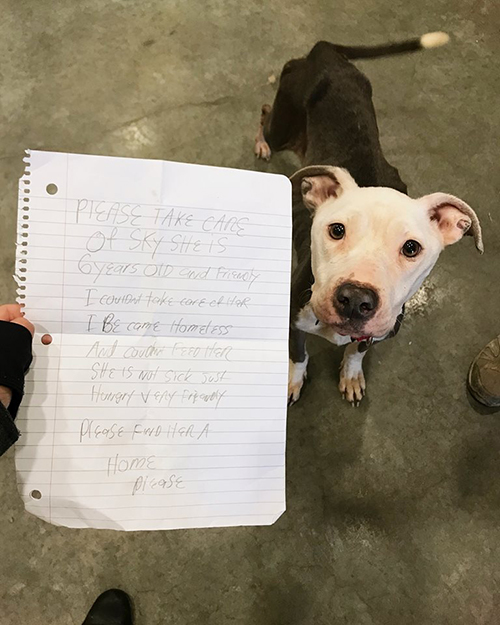 PlEASE TAKE CARE
Of SKY SHE IS
6 years OLD and FRIENDLY
I COULDNT take care of HER
I BE came HOMEless
AND COULDNt FEED HER
SHE IS NOt Sick JUSt
HUNGRY VERY FRIENDLY
PlEASE FIND HER A
HOME
PlEASE